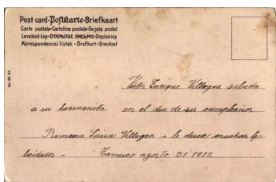 Post card-Postkarte-Briefkaart
Carte postale-Cartolina postale-Tarjeta postal
Levelező-Lap-Открытое письмо-Dopisnice
Korespondencní listek - Brefkort-Brevkort
Víctor Enrique Villagra saluda
a su hermanita en el dia de su cumpleaños
Ramona Luisa Villagra i le desea muchas fe
licidades - Temuco agosto 31 1927.